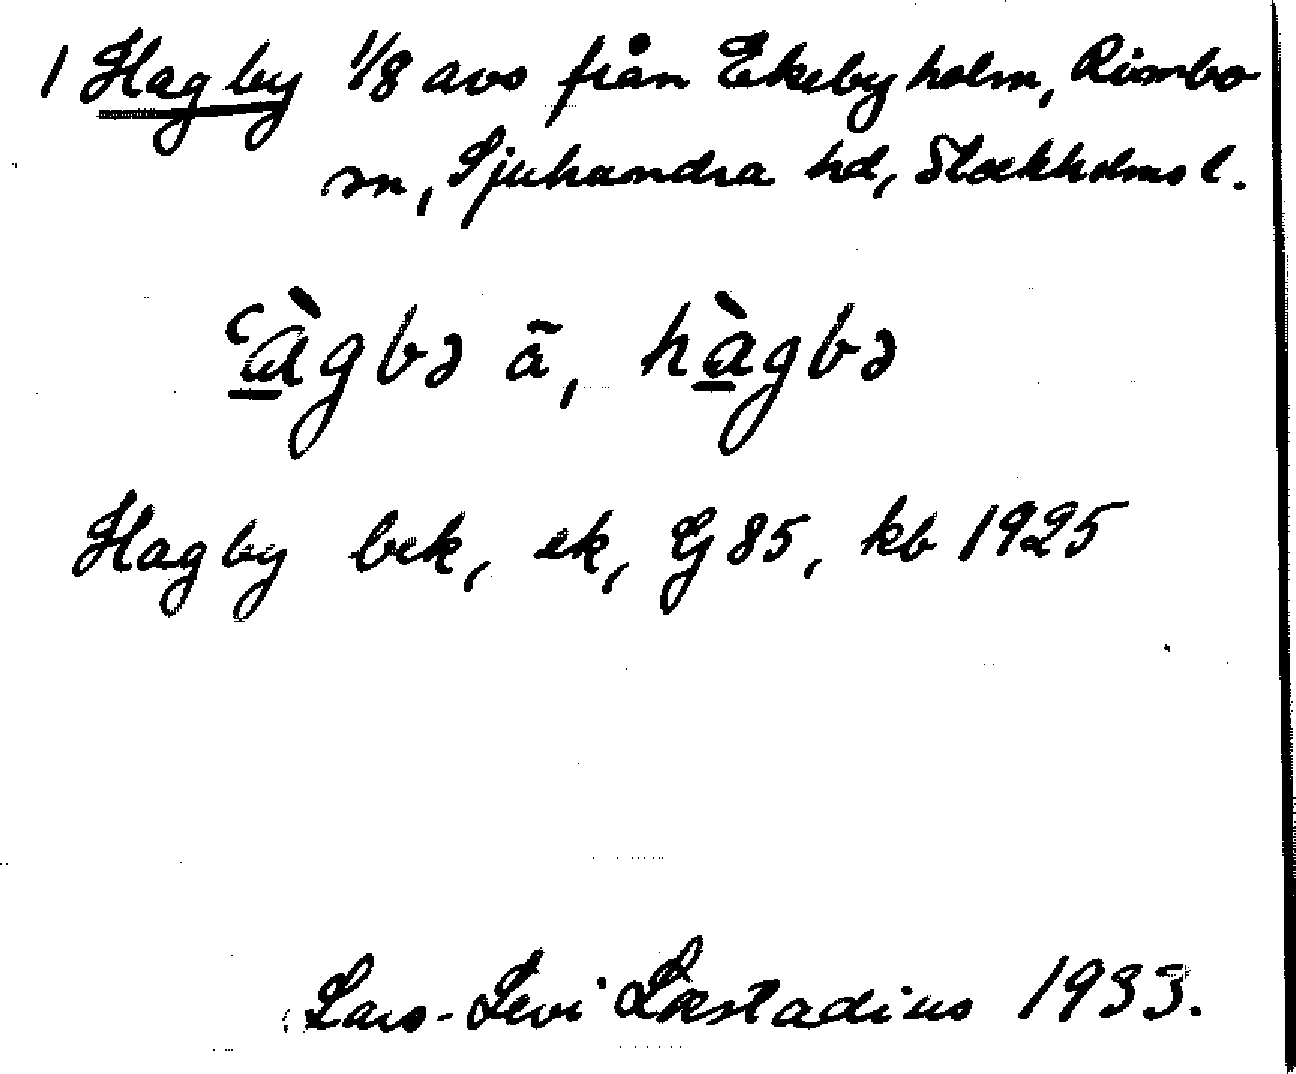 1 Hagby 1/8 avs från Ekebyholm, Rimbo
sn, Sjuhundra hd, Stockholms l.
ʽà̱gbə ā, hà̱gbə
Hagby bek, ek, G 85, kb 1925
Lars-Levi Læstadius 1933.